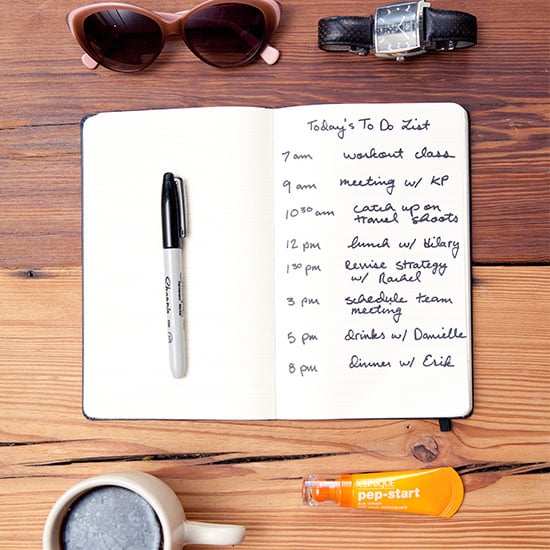 Today's To Do List
7 am workout class
9 am meeting w/ KP
10 30 am catch up on
travel shoots
12 pm lunch w/ Hilary
1 30 pm Revise strategy
w/ Rachel
3 pm schedule team
meeting
5 pm drinks w/ Danielle
8 pm dinner w/ Erik
Sharpie
CLINIQUE
pep-start
eye cream